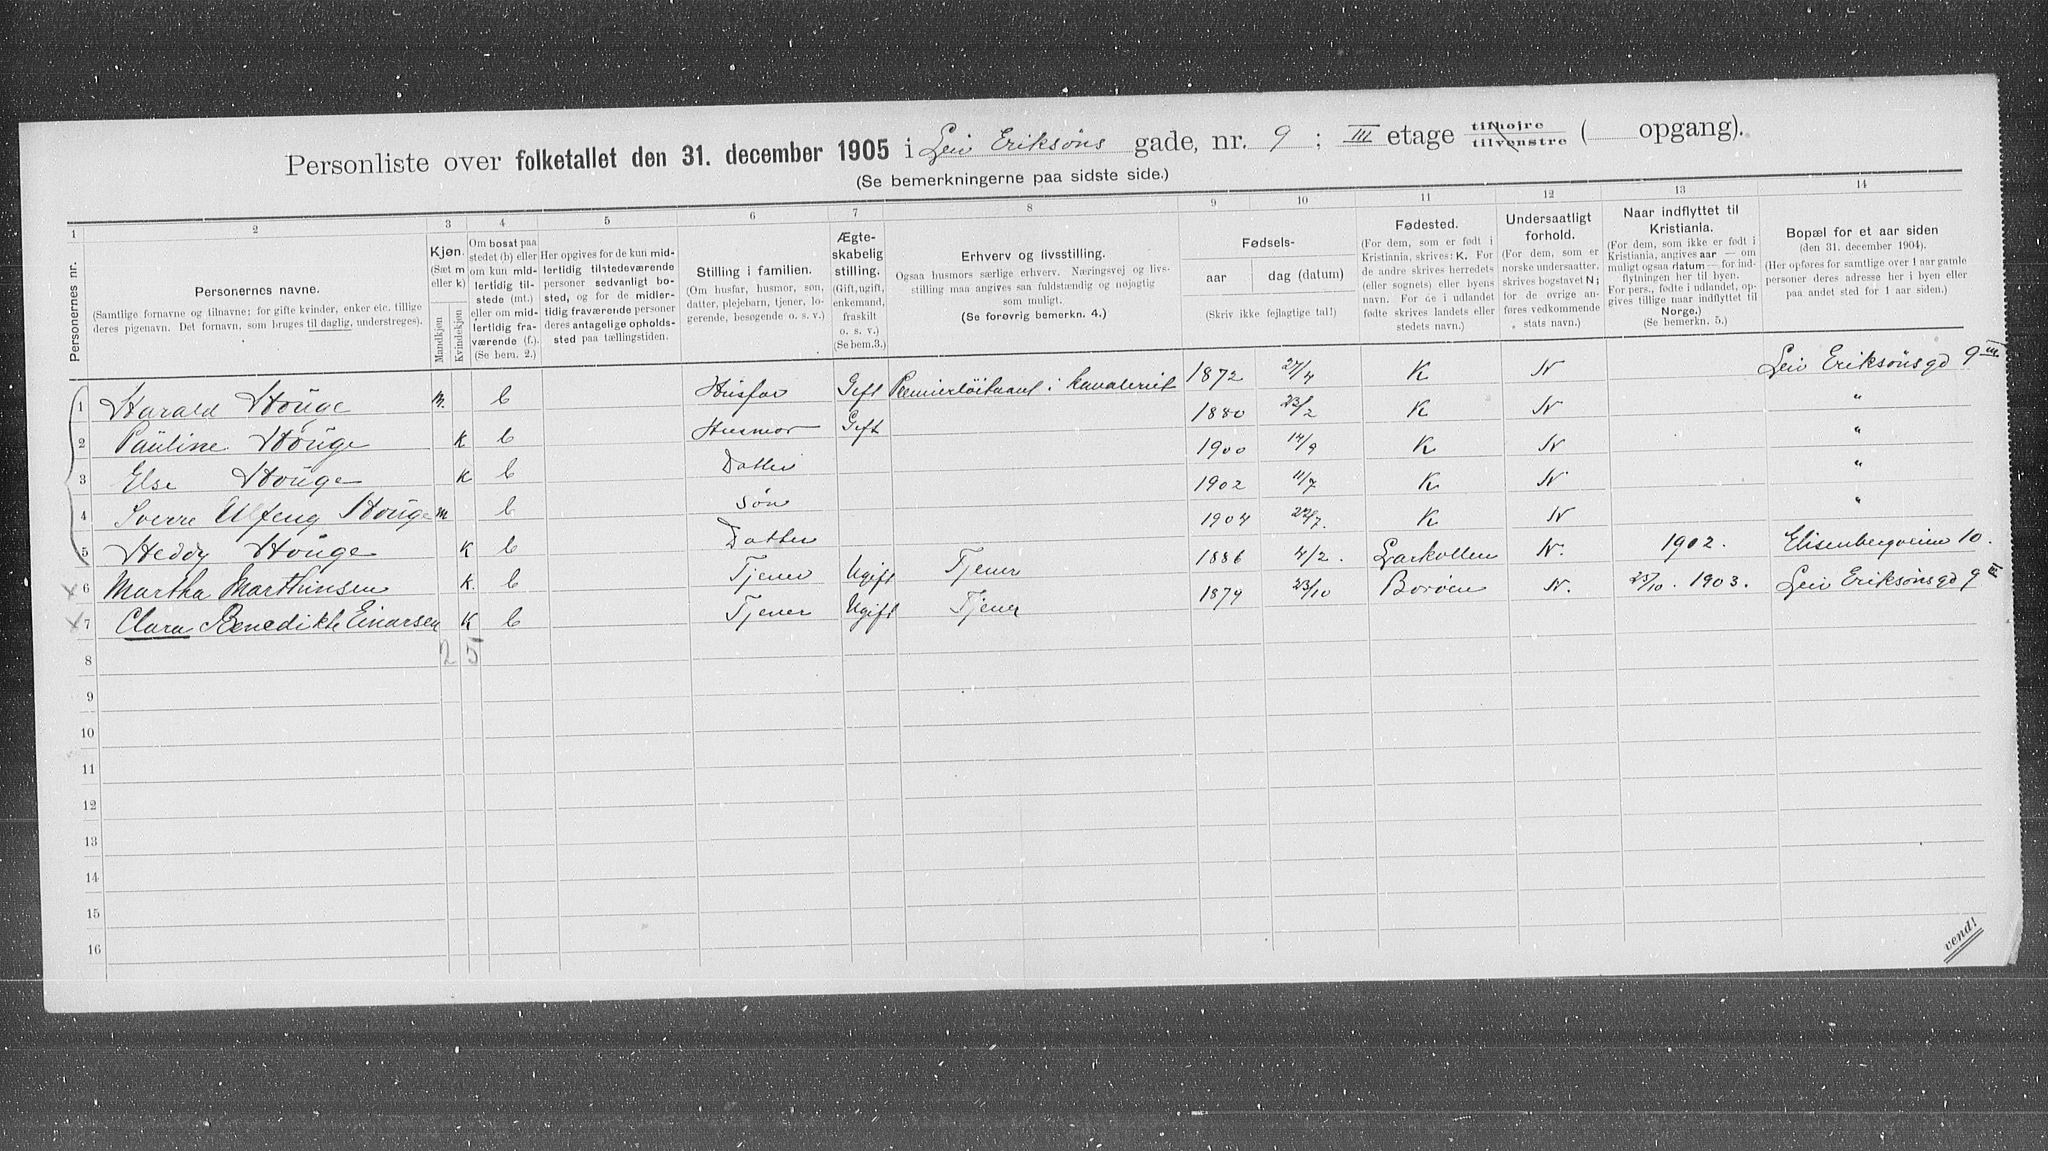 Personliste over folketallet den 31. december 1905 i Leiv Eriksøns gade, nr. 9 ; III etage tilhøjre tilvenstre ( opgang).
(Se bemerkningerne paa sidste side.)
1 2 3 4 5 6 7 8 9 10 11 12 13 14
Personernes nr.
Personernes navne.
(Samtlige fornavne og tilnavne; for gifte kvinder, enker etc. tillige
deres pigenavn. Det fornavn, som bruges til daglig, understreges).
Kjøn.
(Sæt m
eller k)
Mandkjøn
Kvindekjøn
Om bosat paa
stedet (b) eller
om kun mid-
lertidig til-
stede (mt.)
eller om mid-
lertidig fra-
værende (f.).
(Se bem. 2.)
Her opgives for de kun mid-
lertidig tilstedeværende
personer sedvanlig bo-
sted, og for de midler-
tidig fraværende personer
deres antagelige opholds-
sted paa tællingstiden.
Stilling i familien.
(Om husfar, husmor, søn,
datter, plejebarn, tjener, lo-
gerende, besøgende o. s. v.)
Ægte-
skabelig
stilling.
(Gift, ugift,
enkemand,
fraskilt
o. s. v.)
(Se bem.3.)
Erhverv og livsstilling.
Ogsaa husmors særlige erhverv. Næringsvej og livs-
stilling maa angives saa fuldstændig og nøjagtig
som muligt.
(Se forøvrig bemerkn. 4.)
Fødsels-
aar dag (datum)
(Skriv ikke fejlagtige tal!)
Fødested.
(For dem, som er født i
Kristiania, skrives: K. For
de andre skrives herredets
(eller sognets) eller byens
navn. For de i udlandet
fødte skrives landets eller
stedets navn.)
Undersaatligt
forhold.
(For dem, som er
norske undersaatter,
skrives bogstavet N;
for de øvrige an-
føres vedkommende
stats navn.)
Naar indflyttet til
Kristiania.
(For dem, som ikke er født i
Kristiania, angives aar — om
muligt ogsaa datum — for ind-
flytningen her til byen.
For pers., fødte i udlandet, op-
gives tillige naar indflyttet til
Norge.)
(Se bemerkn. 5.)
Bopæl for et aar siden
(den 31. december 1904).
(Her opføres for samtlige over 1 aar gamle
personer deres adresse her i byen eller
paa andet sted for 1 aar siden.)
1 Harald Houge m. b Husfar Gift Premierløitnant i kavaleriet 1872 27/4 K N Leiv Eriksønsgd 9 III
2 Pauline Houge K b Husmor Gift 1880 23/2 K N "
3 Else Houge K b Datter 1900 14/9 K N "
4 Sverre Houge m b Søn 1902 11/7 K N "
5 Heddy Houge K b Datter 1904 22/7. K N "
x 6 Martha Marthinsen K. b Tjener Ugift Tjener 1886 4/2. Larkollen N. 1902. Elisenbergveien 10.
x 7 Clara Benedikte Einarsen K b Tjener Ugift Tjener 1879 23/10 Borøen N. 23/10. 1903. Leiv Eriksønsgd 9 III
8 2 5
9
10
11
12
13
14
15
16
vend!